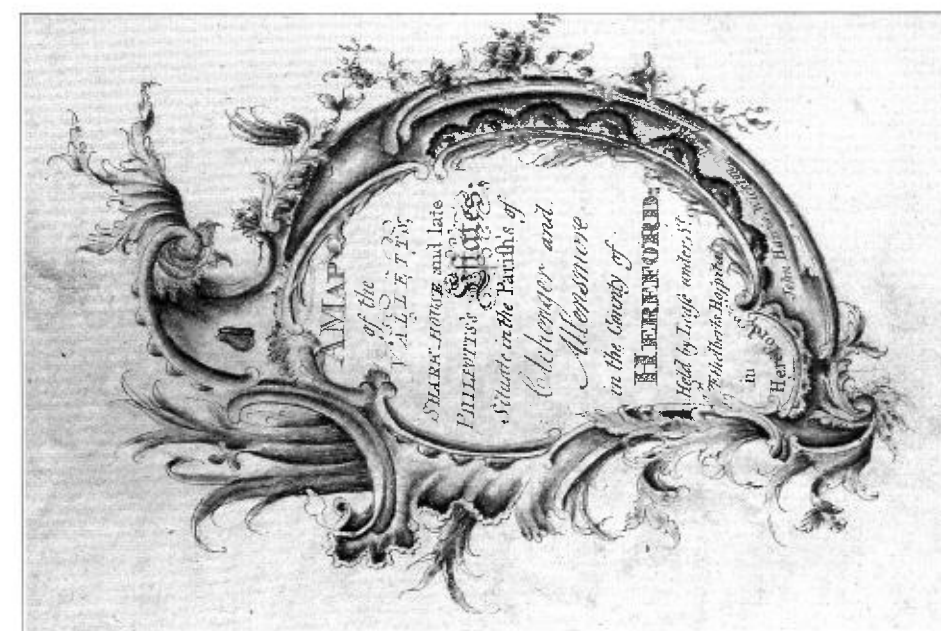 A MAP
of the
VALLETTS,
and late
PHILPOTTS's Estates.
Situate in the Parishs of
Clehonger and
Allensmore
in the County of
HEREFORD.
Held by Lease under St.
Ethelberts Hospital
in
Hereford
John